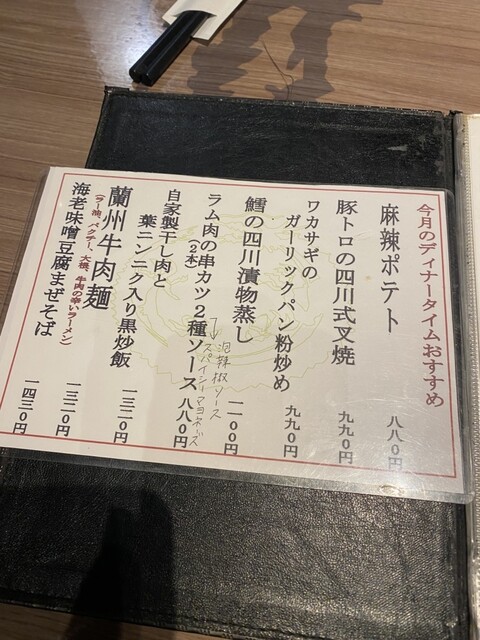 今月のディナータイムおすすめ
麻辣ポテト
八八〇円
豚トロの四川式叉焼
九九〇円
ワカサギの
ガーリックパン粉炒め
九九〇円
鱈の四川漬物蒸し
一一〇〇円
ラム肉の串カツ2種ソース
(2本)
八八〇円
泡辣椒ソース
スパイシーマヨネーズ
自家製干し肉と
葉ニンニク入り黒炒飯
一三二〇円
蘭州牛肉麺
(ラー油、パクチー、大根、牛肉の辛いラーメン)
一三二〇円
海老味噌豆腐まぜそば
一四三〇円